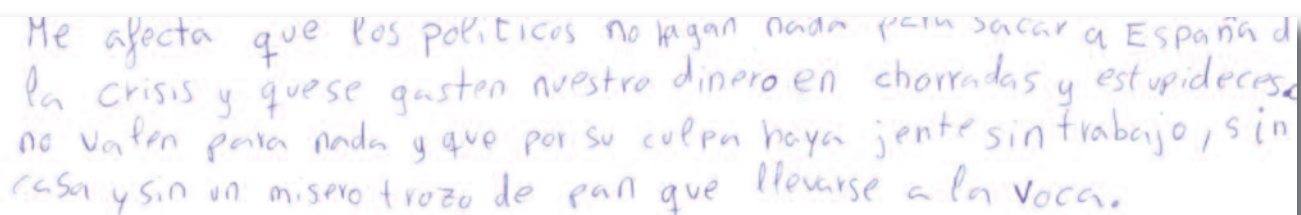 Me afecta que los politicos no hagan nada para sacar a España d
la crisis y quese gasten nuestro dinero en chorradas y estupideces
no valen para nada y que por su culpa haya jente sin trabajo, sin
casa y sin un misero trozo de pan que llevarse a la voca.